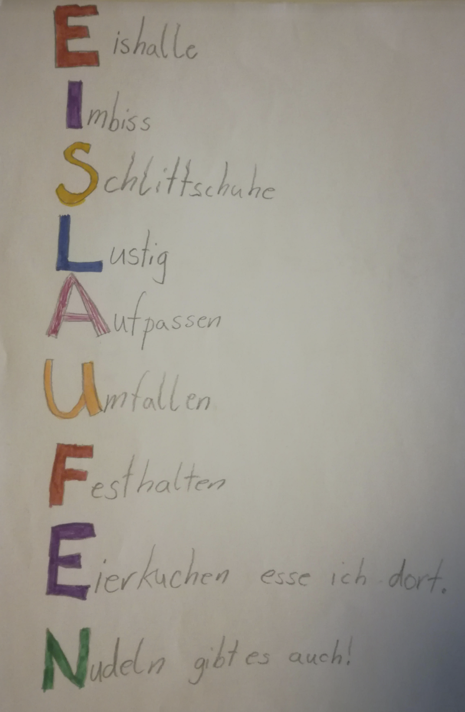 Eishalle
Imbiss
Schlittschuhe
Lustig
Aufpassen
Umfallen
Festhalten
Eierkuchen esse ich dort.
Nudeln gibt es auch!